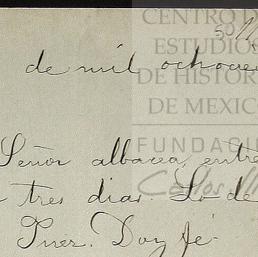 CENTRO D
ESTUDIO
DE HISTOR
DE MEXIC
FUNDACI
Carlos
50
de mil ochocie
Señor albacea, entre
tres dias. Lo de
Juez. Doy fé.